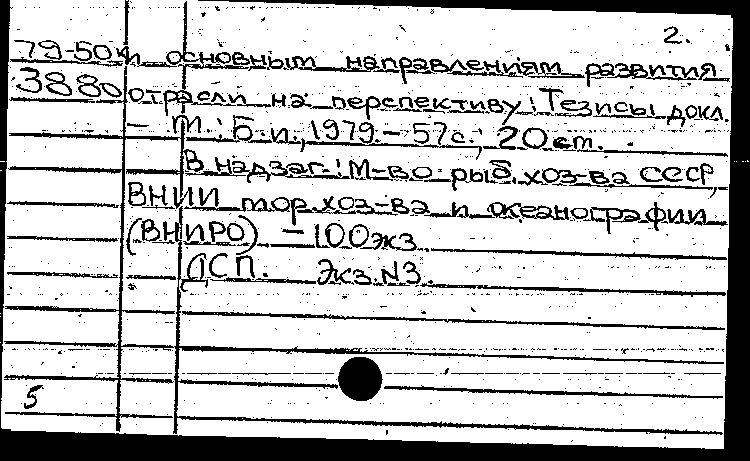 2.
79-50к и основным направлениям развития
3880 отрасли на перспективу: Тезисы докл.
– М.: Б.и., 1979. – 57с.; 20 см.
В надзаг.: М-во рыб. хоз-ва СССР,
ВНИИ мор. хоз-ва и океанографии
(ВНИРО) – 100 экз.
ДСП. Экз. N3.
5